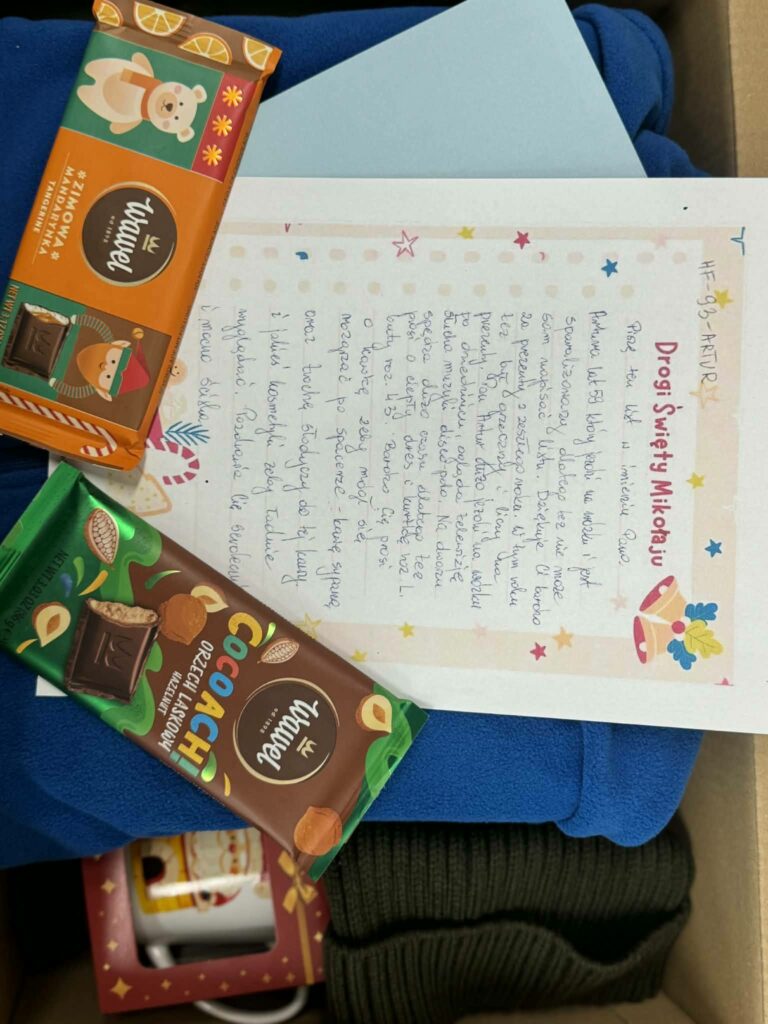 HF-93-ARTUR
Drogi Święty Mikołaju
Piszę ten list w imieniu Pana
Artura lat 59 który jeździ na wózku i jest
sparaliżowany, dlatego też nie może
sam napisać listu. Dziękuje Ci bardzo
za prezenty z zeszłego roku. W tym roku
też był grzeczny i liczy na
prezenty. Pan Artur dużo jeździ na wózku
po ogląda telewizję
słucha muzyki disco polo. Na dworze
spędza dużo czasu dlatego też
prosi o ciepły dres i kurtkę roz. L.
buty roz. 43. Bardzo Cię prosi
o kawkę żeby mógł się
rozgrzać po spacerze - kawę sypaną
oraz trochę słodyczy do tej kawy.
i jakieś kosmetyki żeby ładnie
wyglądać. Pozdrawia Cię
i mocno ściska
Wawel
od 1898
ZIMOWA
MANDARYNKA
TANGERINE
Wawel
od 1898
COCOACH!
ORZECH LASKOWY
HAZELNUT